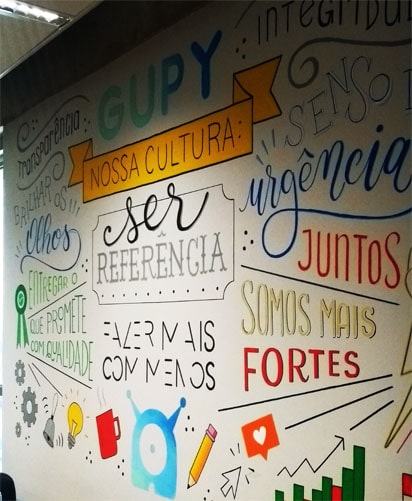 GUPY
NOSSA CULTURA:
Transparência
BRILHAR OS
Olhos
ENTREGAR O
QUE PROMETE
COM QUALIDADE
ser
REFERÊNCIA
FAZER MAIS
COM MENOS
INTEGRIDAD
SENSO
urgência
JUNTOS
SOMOS MAIS
FORTES